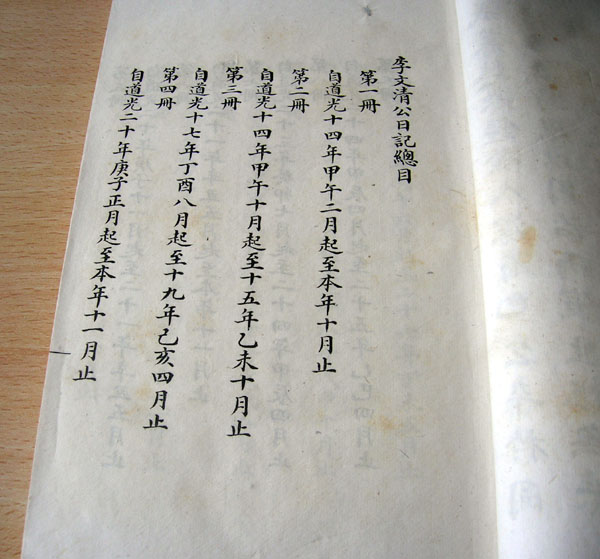 李文清公日記總目
第一冊
自道光十四年甲午二月起至本年十月止
第二冊
自道光十四年甲午十月起至十五年乙未十月止
第三冊
自道光十七年丁酉八月起至十九年己亥四月止
第四冊
自道光二十年庚子正月起至本年十一月止